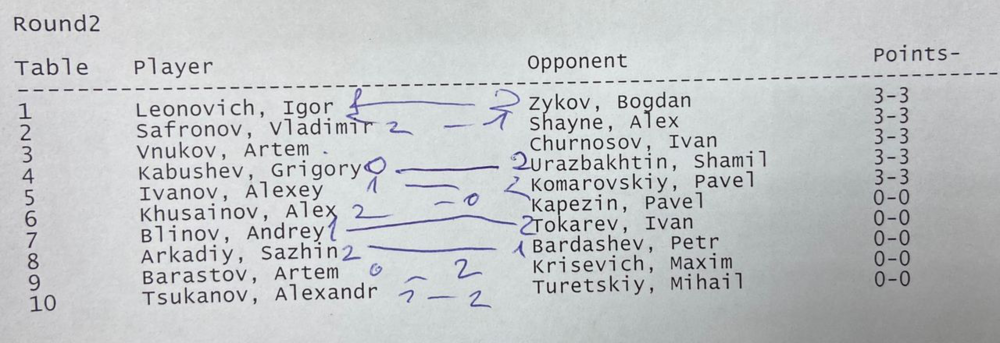 Round2
Table Player Opponent Points-
1 Leonovich, Igor 1 — 2 Zykov, Bogdan 3-3
2 Safronov, Vladimir 2 — 1 Shayne, Alex 3-3
3 Vnukov, Artem Churnosov, Ivan 3-3
4 Kabushev, Grigory 0 — 2 Urazbakhtin, Shamil 3-3
5 Ivanov, Alexey 1 — 2 Komarovskiy, Pavel 3-3
6 Khusainov, Alex 2 — 0 Kapezin, Pavel 0-0
7 Blinov, Andrey 1 — 2 Tokarev, Ivan 0-0
8 Arkadiy, Sazhin 2 — 1 Bardashev, Petr 0-0
9 Barastov, Artem 0 — 2 Krisevich, Maxim 0-0
10 Tsukanov, Alexandr 1 — 2 Turetskiy, Mihail 0-0